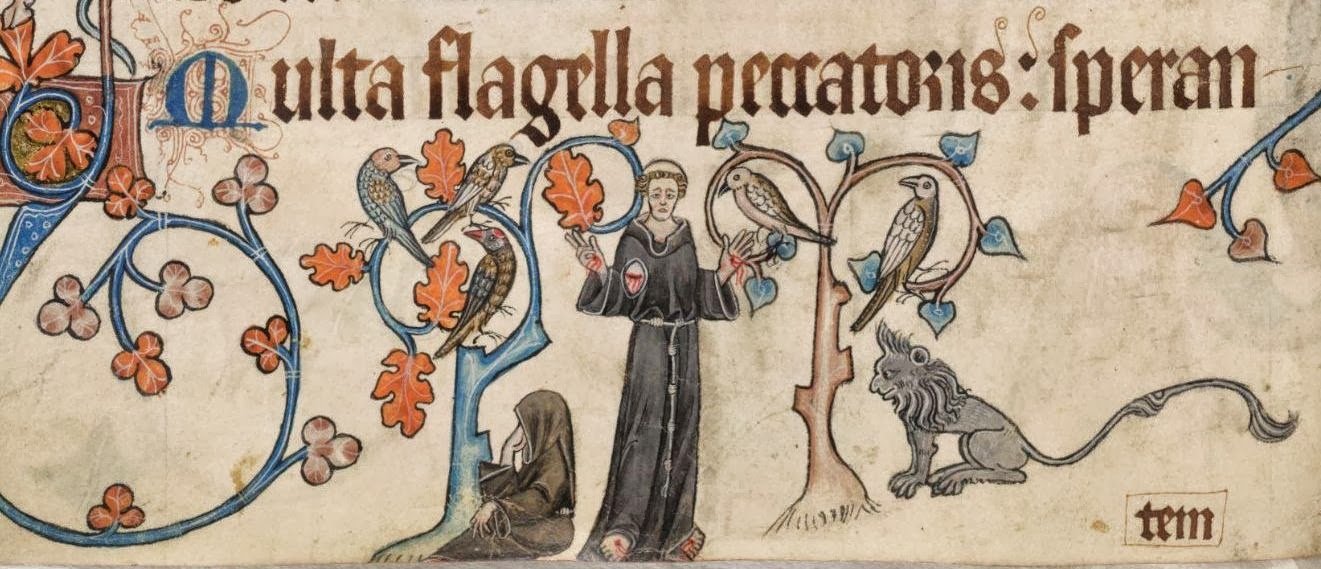 Multa flagella peccatoris: speran
tem